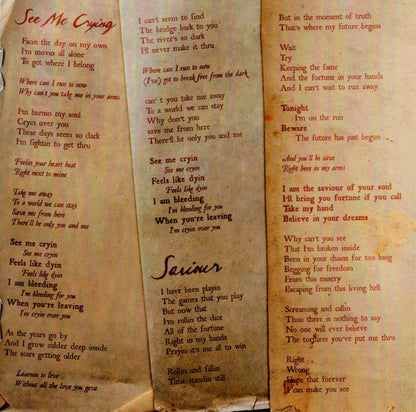 See Me Crying
Facin the day on my own
I'm movin all alone
To get where I belong
Where can I run to now
Why can't you take me in your arms
I'm burnin my soul
Cryin over you
These days seem so dark
I'm fightin to get thru
Feelin your heart beat
Right next to mine
Take me away
To a world we can stay
Save me from here
There'll be only you and me
See me cryin
See me cryin
Feels like dyin
Feels like dyin
I am bleeding
I'm bleeding for you
When you're leaving
I'm cryin over you
As the years go by
And I grow colder deep inside
The scars getting older
Learnin to love
Without all the love you gave
I can't seem to find
The bridge back to you
The river's so dark
I'll never make it thru
Where can I run to now
(I've) got to break free from the dark
can't you take me away
To a world we can stay
Why don't you
save me from here
There'll be only you and me
See me cryin
See me cryin
Feels like dyin
Feels like dyin
I am bleeding
I'm bleeding for you
When you're leaving
I'm cryin over you
Saviour
I have been playin
The games that you play
But now that
I'm rollin the dice
All of the fortune
Right in my hands
Prayin it's me all to win
Rollin and fallin
Time standin still
But in the moment of truth
That's where my future begins
Wait
Try
Keeping the fame
And the fortune in your hands
And I can't wait to run away
Tonight
I'm on the run
Beware
The future has just begun
And you'll be save
Right here in my arms
I am the saviour of your soul
I'll bring you fortune if you call
Take my hand
Believe in your dreams
Why can't you see
That I'm broken inside
Been in your chains for too long
Begging for freedom
From this misery
Escaping from this living hell
Screaming and callin
Thou there is nothing to say
No one will ever believe
The tortures you've put me thru
Right
Wrong
Hope that forever
I can make you see